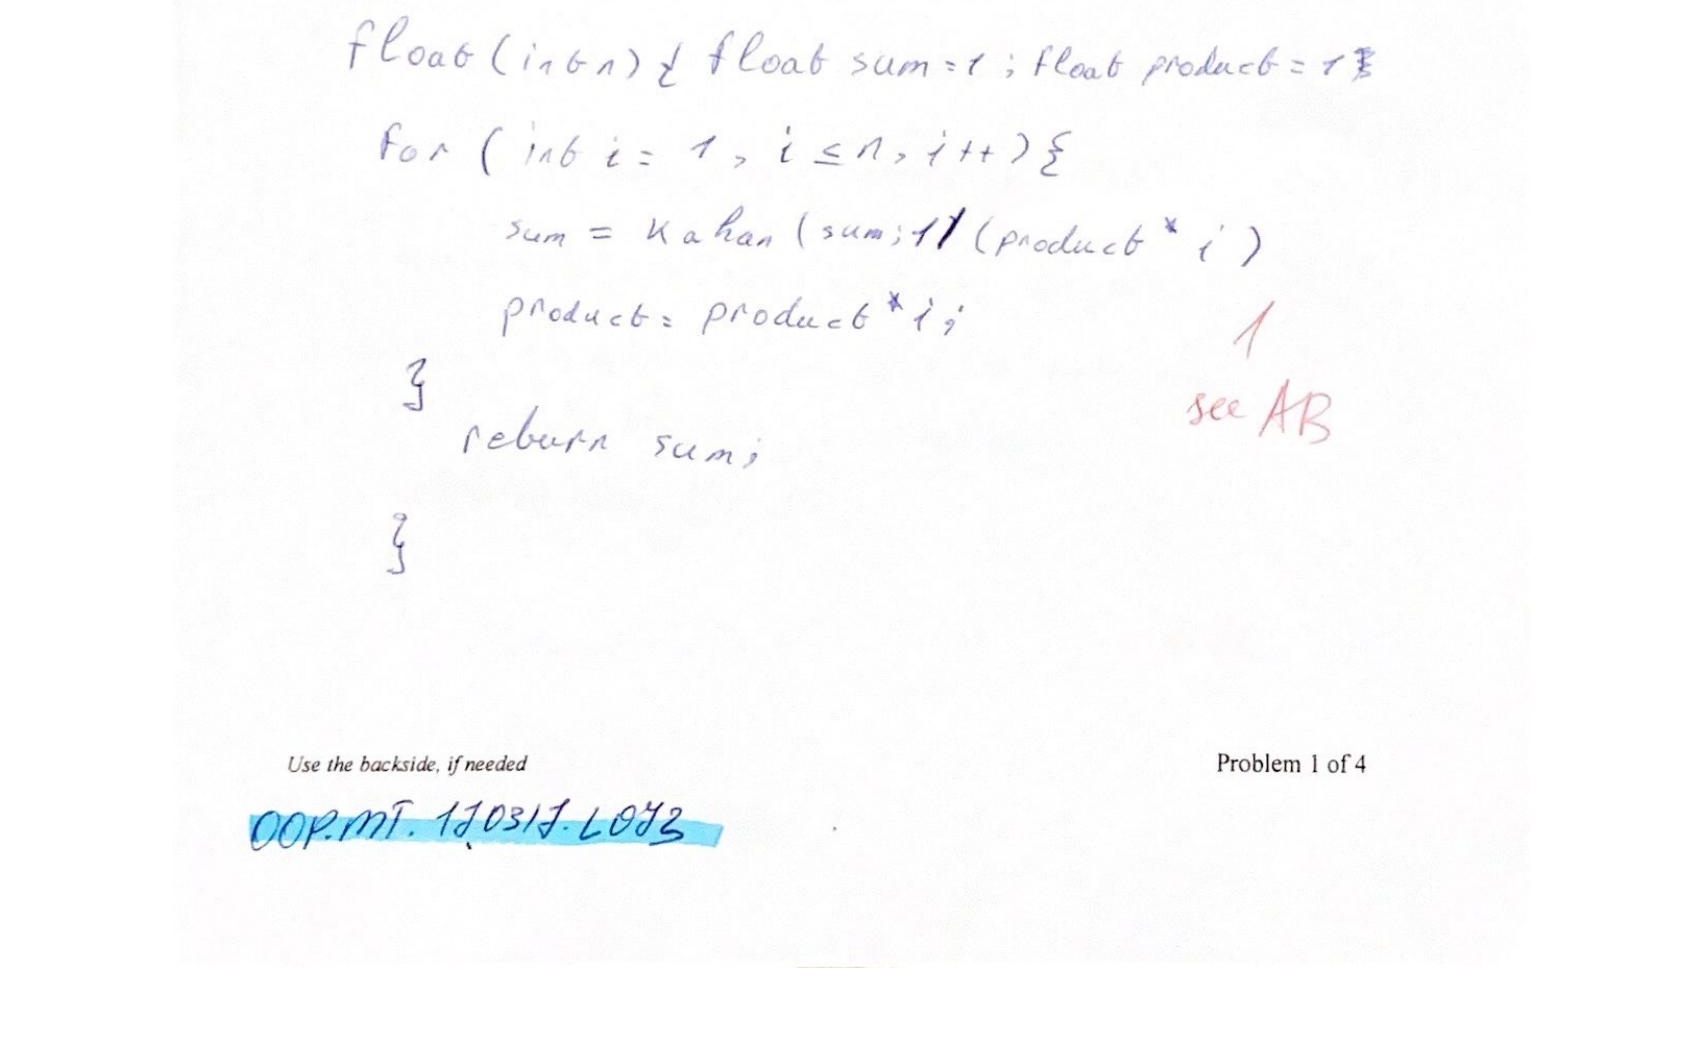 float (int n) { float sum = 1 ; float product = 1;
for ( int i = 1 , i ≤ n, i ++ ) {
sum = Kahan ( sum; 1/ (product * i )
product = product * i;
1
}
see AB
return sum;
}
Use the backside, if needed
Problem 1 of 4
OOP.MT. 170317. L073